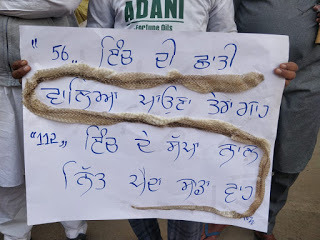 ADANI
Fortune Oils
"56" ਇੰਚ ਦੀ ਛਾਤੀ
ਵਾਲਿਆ ਆਉਣਾ ਤੇਰਾ ਗਾਹ
"112" ਇੰਚ ਦੇ ਸੱਪਾ ਨਾਲ
ਨਿੱਤ ਪੈਂਦਾ ਸਾਡਾ ਵਾਹ